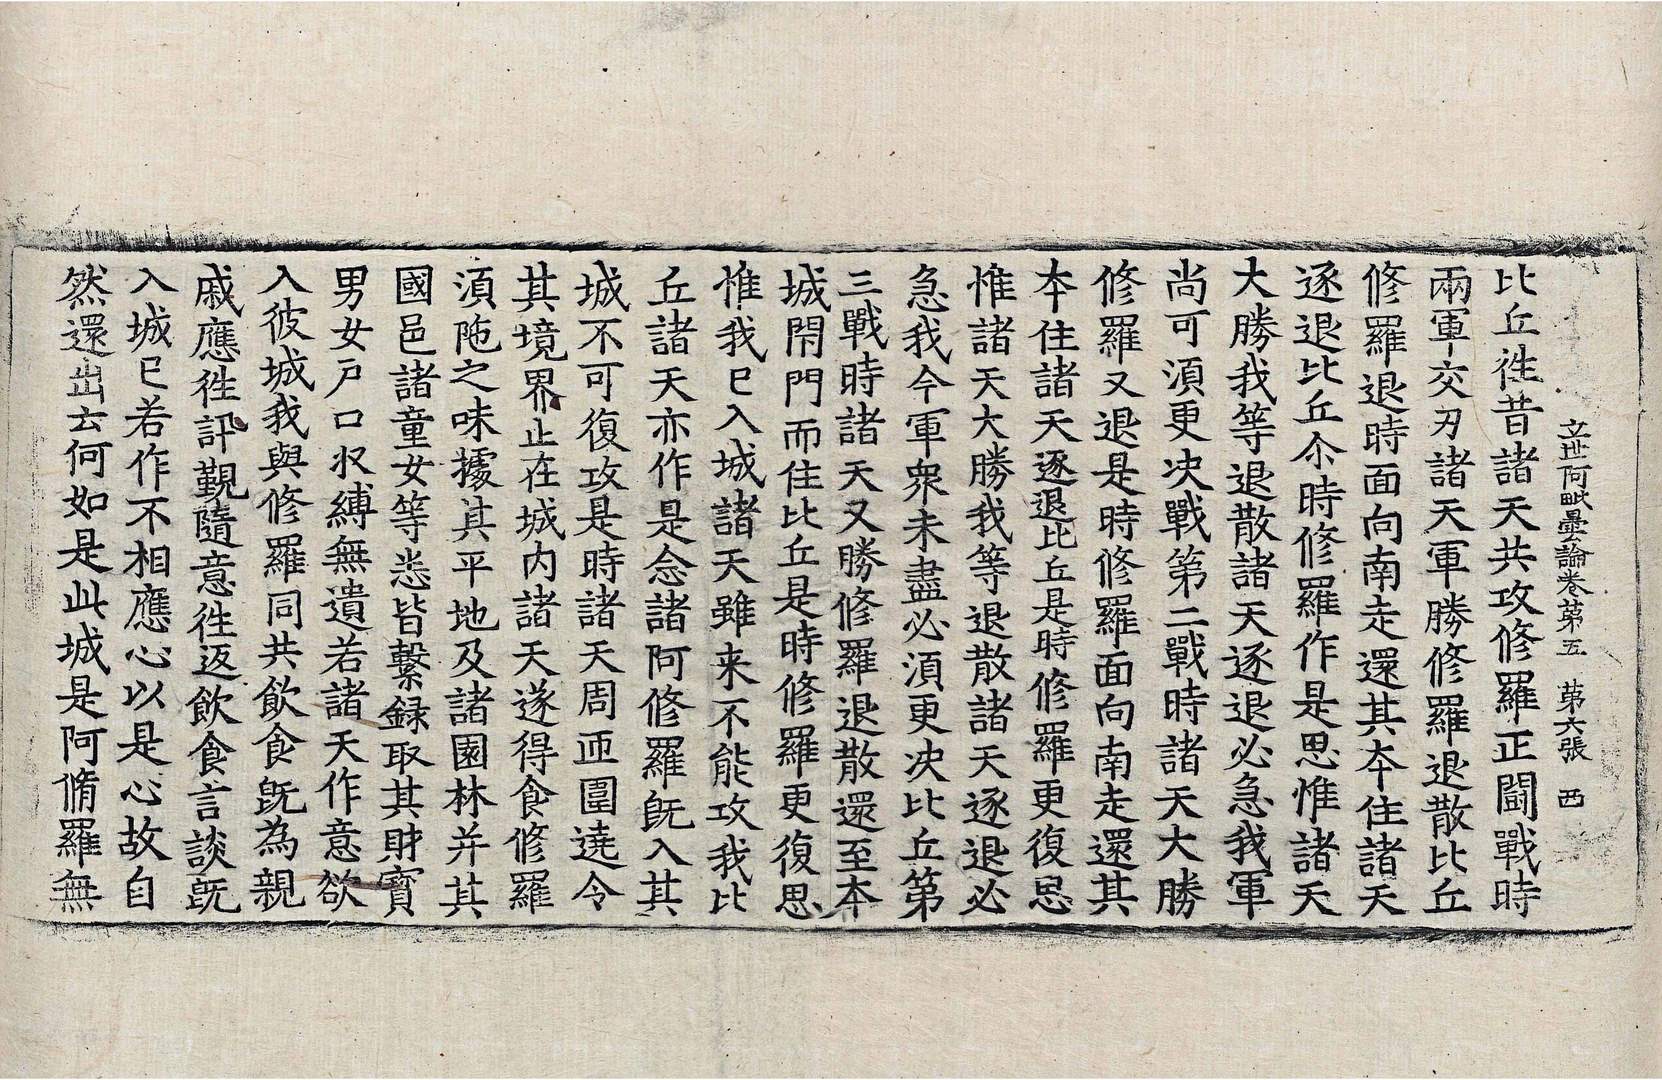 立世阿毗曇論卷苐五　苐六張　西
比丘徃昔諸天共攻修羅正闘戰時
兩軍交刃諸天軍勝修羅退散比丘
修羅退時面向南走還其夲住諸天
逐退比丘尒時修羅作是思惟諸天
大勝我等退散諸天逐退必急我軍
尚可湏更決戰第二戰時諸天大勝
修羅又退是時修羅面向南走還其
夲住諸天逐退比丘是時修羅更復思
惟諸天大勝我等退散諸天逐退必
急我今軍衆未盡必湏更决比丘第
三戰時諸天又勝修羅退散還至本
城閇門而住比丘是時修羅更復思
惟我已入城諸天雖来不能攻我比
丘諸天亦作是念諸阿修羅旣入其
城不可復攻是時諸天周帀圍遶令
其境界止在城内諸天遂得食修羅
湏陁之味據其平地及諸園林并其
國邑諸童女等悉皆繫録取其財寳
男女戸口収縛無遺若諸天作意欲
入彼城我與修羅同共飲食旣為親
戚應徃訊觀隨意徃返飲食言談旣
入城已若作不相應心以是心故自
然還出云何如是此城是阿脩羅無